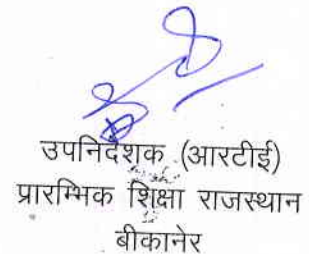 उपनिदेशक (आरटीई)
प्रारम्भिक शिक्षा राजस्थान
बीकानेर